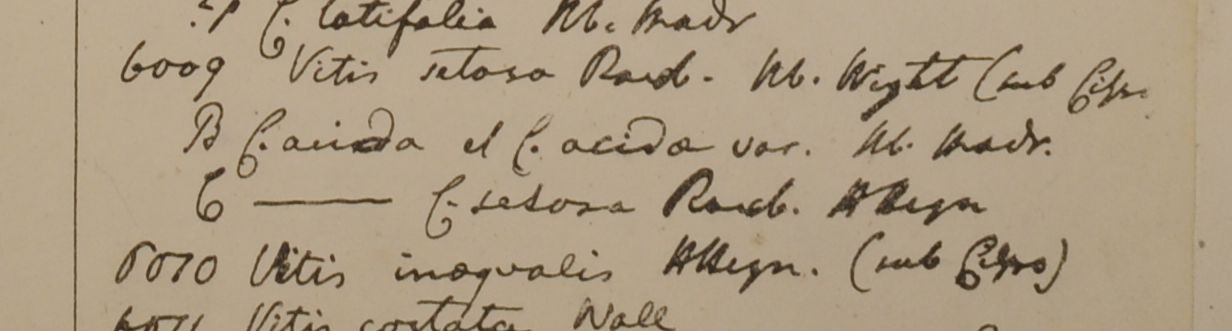 C. latifolia Hb. Madr
6009 Vitis setosa Roxb. Hb. Wight (sub Cisso
B C. acida et C. acida var. Hb. Madr.
C —— C. setosa Roxb. HHeyn
6010 Vitis inaequalis HHeyn. (sub Cisso)
6011 Vitis costata Wall